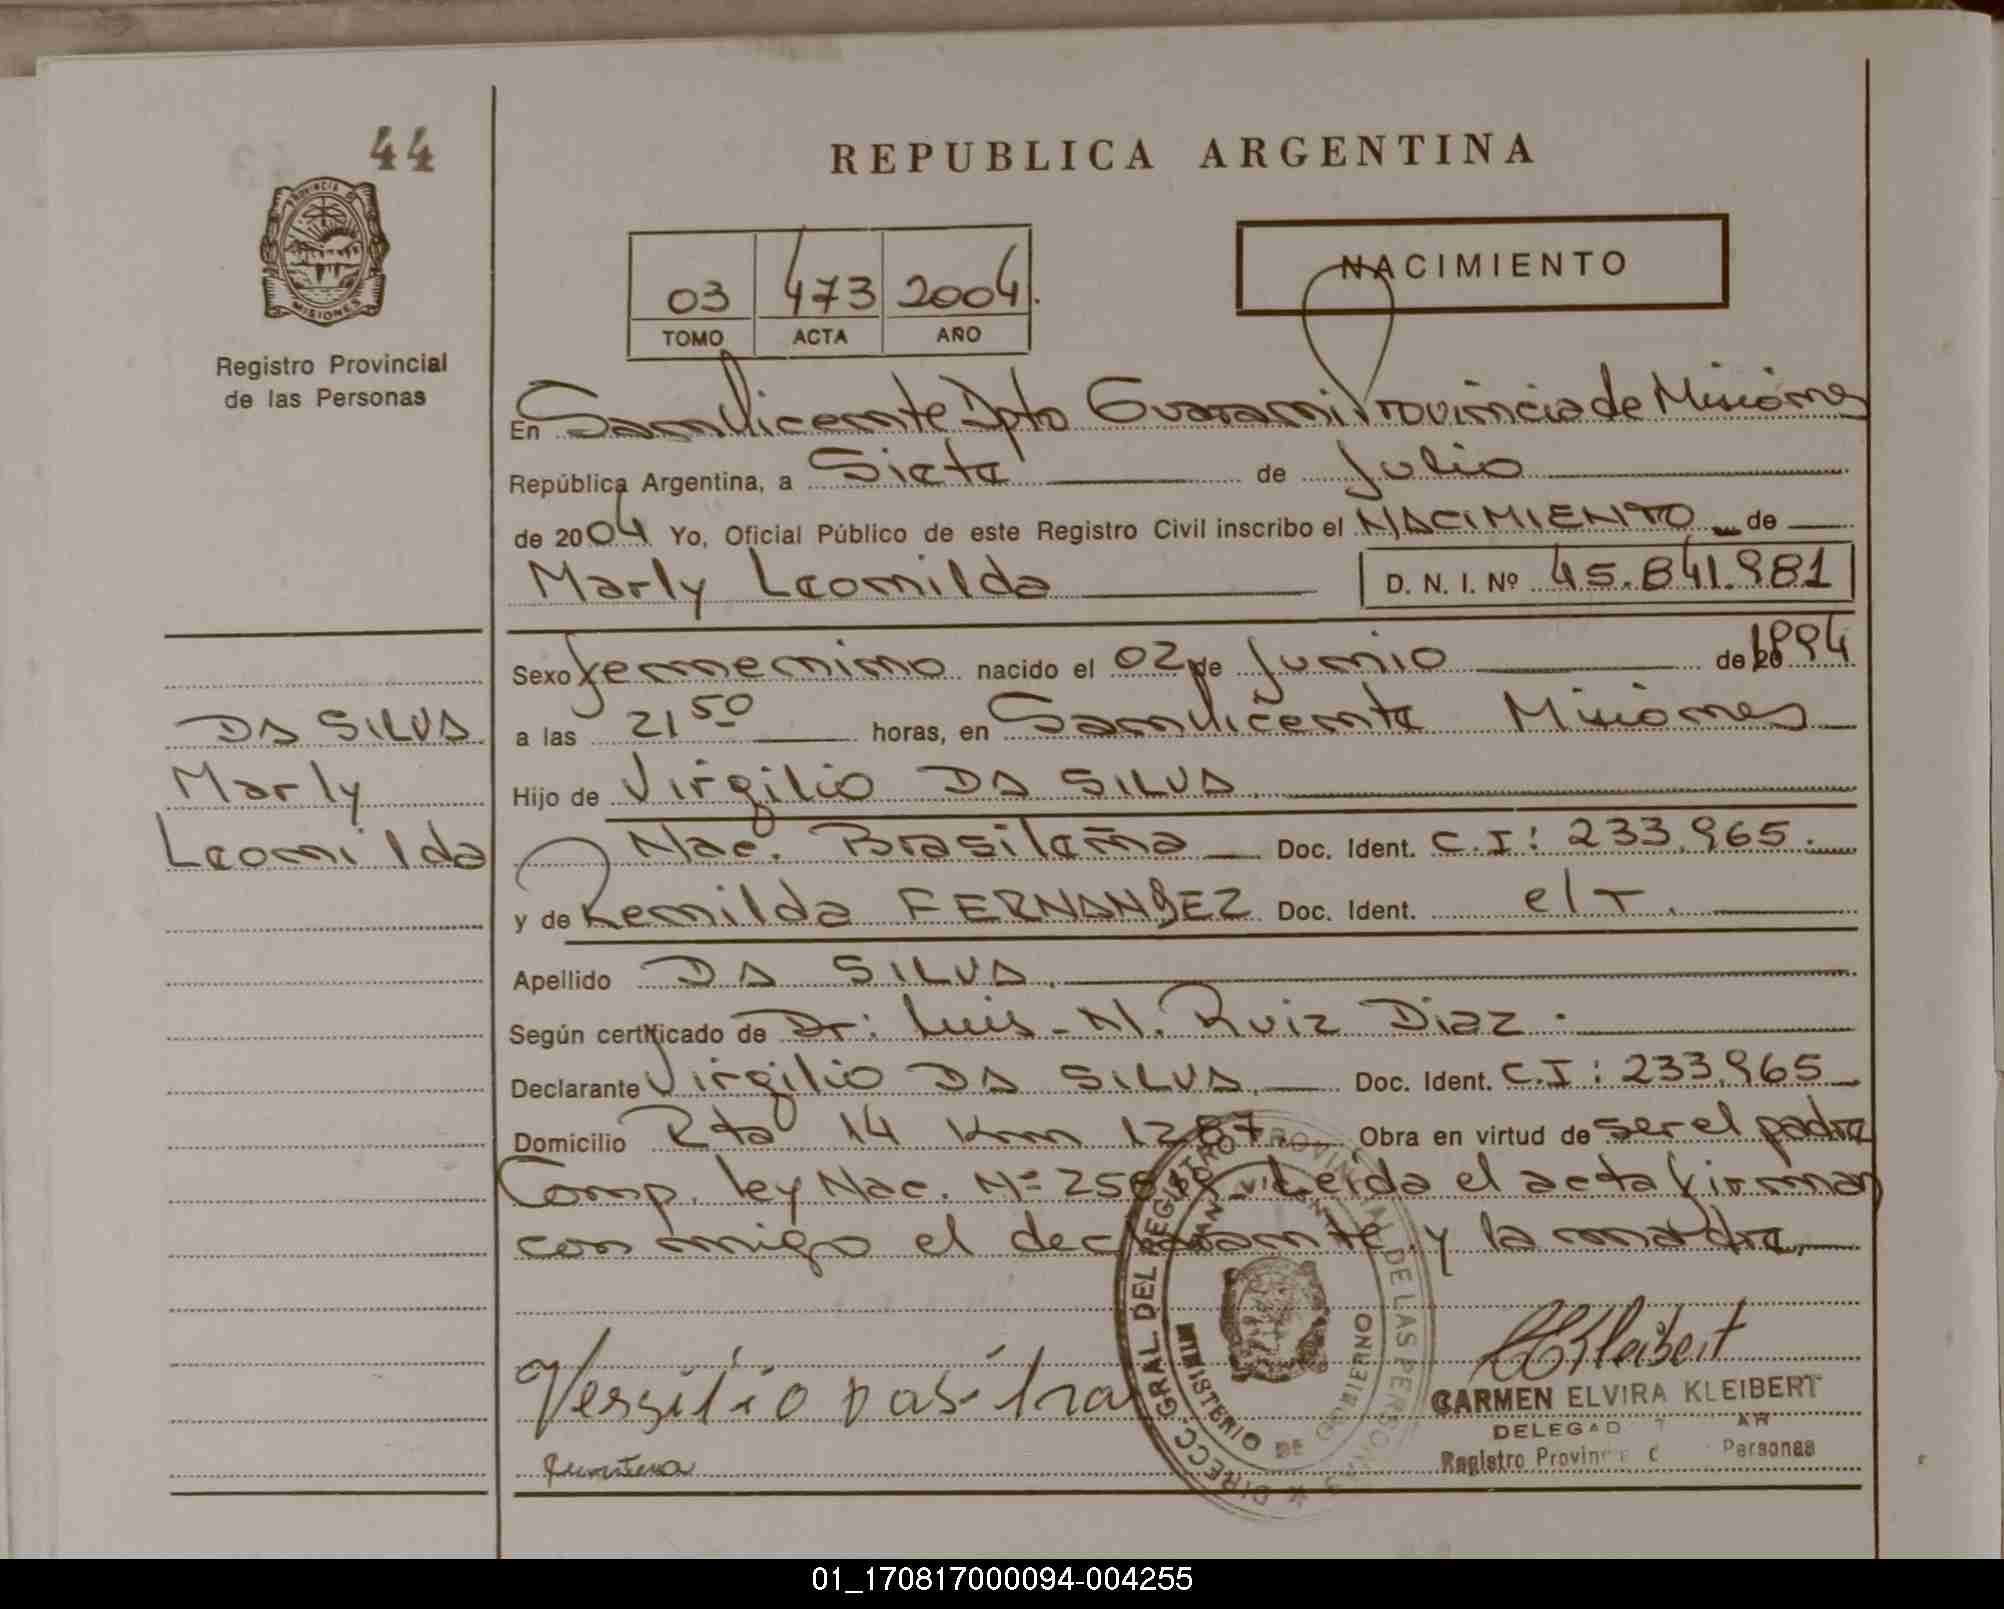 44
REPUBLICA ARGENTINA
PROVINCIA DE
MISIONES
Registro Provincial
de las Personas
03 473 2004.
TOMO ACTA AÑO
NACIMIENTO
En San Vicente Dpto Guarani Provincia de Misiones
República Argentina, a Siete de Julio
de 2004 Yo, Oficial Público de este Registro Civil inscribo el NACIMIENTO de
Marly Leonilda D. N. I. Nº 45.841.981
Sexo femenino nacido el 02 de Junio de 1994
a las 21 50 horas, en San Vicente Misiones
Hijo de Virgilio DA SILVA
Nac. Brasileña Doc. Ident. C.I: 233.965.
y de Remilda FERNANDEZ Doc. Ident.
Apellido DA SILVA.
Según certificado de Dr: Luis N. Ruiz Diaz.
Declarante Virgilio DA SILVA. Doc. Ident. C.I: 233.965
Domicilio Rta 14 Km 1287. Obra en virtud de ser el padre
Comp. ley Nac. Nº Leída el acta firman
conmigo el declarante y la madre,
DA SILVA
Marly
Leonilda
DIRECC. GRAL DEL REGISTRO PROVINCIAL DE LAS PERSONAS
SAN VICENTE
MINISTERIO DE GOBIERNO
CEKleibert
CARMEN ELVIRA KLEIBERT
Registro Personas
01_170817000094-004255